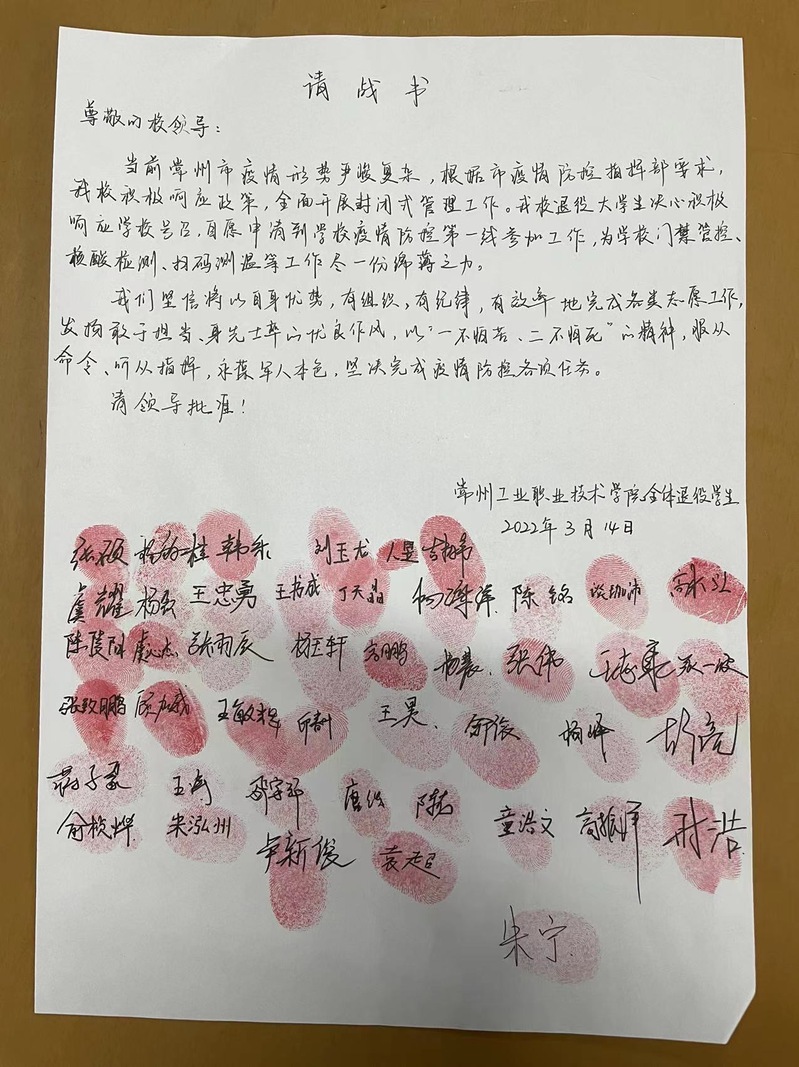 请战书
尊敬的校领导：
当前常州市疫情形势严峻复杂，根据市疫情防控指挥部要求，
我校积极响应政策，全面开展封闭式管理工作。我校退役大学生决心积极
响应学校号召，自愿申请到学校疫情防控第一线参加工作，为学校门禁管控、
核酸检测、扫码测温等工作尽一份绵薄之力。
我们坚信将以自身优势，有组织，有纪律，有效率地完成各类志愿工作，
发扬敢于担当、身先士率的优良作风，以“一不怕苦、二不怕死”的精神，服从
命令、听从指挥，永葆军人本色，坚决完成疫情防控各项任务。
请领导批准！
常州工业职业技术学院全体退役学生
2022年3月14日
张硕 韩乐 刘玉龙
虞耀 杨毅 王忠勇 王书成 丁天晶 陈铭
张雨辰 杨玉轩 方鹏 张伟
张致鹏 王敏 王昊 舒俊
王涛 唐俊
俞桢烨 朱泓州 卢新俊 袁超 童浩文 高振洋 孙浩
朱宁